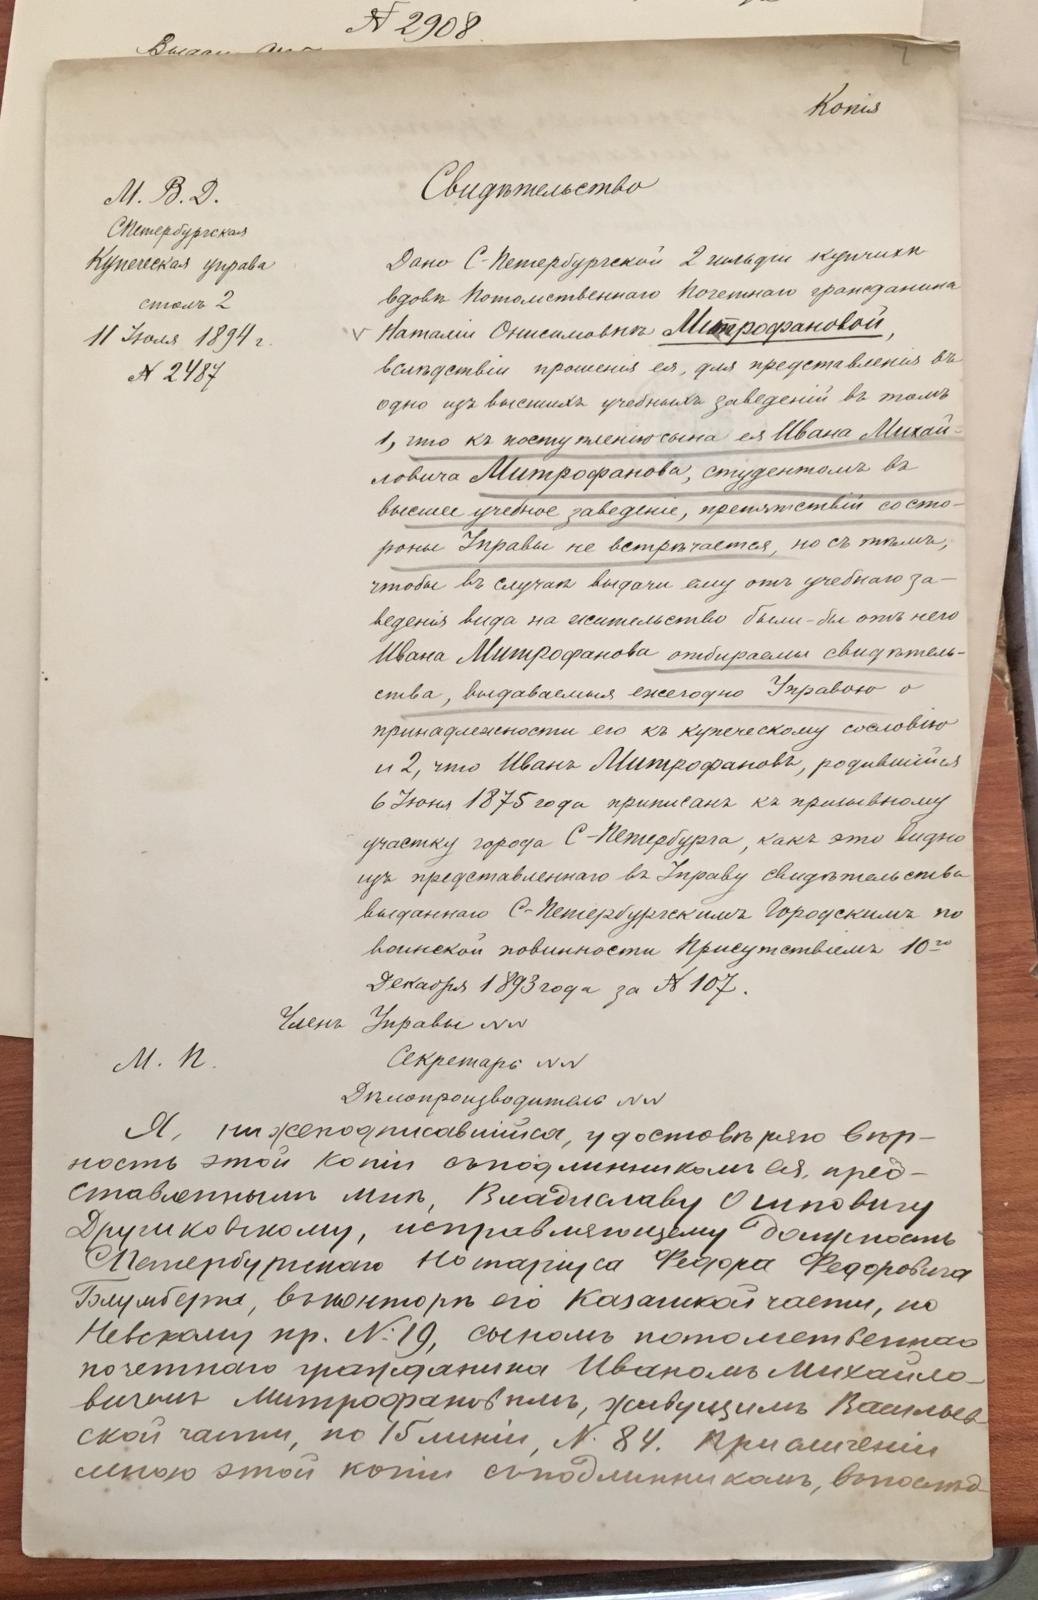 № 2908
Копія
М. В. Д.
СПетербургская
Купеческая управа
столъ 2
11 Іюля 1894 г.
№ 2487
Свидѣтельство
Дано С-Петербургской 2 гильдіи купчихѣ
вдовѣ Потомственнаго Почетнаго гражданина
Наталіи Онисимовнѣ Митрофановой,
вслѣдствіи прошенія ея, для представленія въ
одно изъ высшихъ учебныхъ заведеній въ томъ
1, что къ поступленію сына ея Ивана Михай-
ловича Митрофанова, студентомъ въ
высшее учебное заведеніе, препятствій со сто-
роны Управы не встрѣчается, но съ тѣмъ,
чтобы въ случаѣ выдачи ему отъ учебнаго за-
веденія вида на жительство были-бы отъ него
Ивана Митрофанова отбираемы свидѣтель-
ства, выдаваемыя ежегодно Управою о
принадлежности его къ купеческому сословію
и 2, что Иванъ Митрофановъ, родившійся
6 Іюня 1875 года приписанъ къ призывному
участку города С-Петербурга, какъ это видно
изъ представленнаго въ Управу свидѣтельства
выданнаго С-Петербургскимъ Городскимъ по
воинской повинности Присутствіемъ 10го
Декабря 1893 года за № 107.
Членъ Управы NN
М. П.
Секретарь NN
Дѣлопроизводитель NN
Я, нижеподписавшійся, удостовѣряю вѣр-
ность этой копіи съ подлинникомъ ея, пред-
ставленнымъ мнѣ, Владиславу Осиповичу
Дручковскому, исправляющему должность
СПетербургскаго Нотаріуса Федора Федоровича
Блумберга, въ конторѣ его Казанской части, по
Невскому пр. № 19, сыномъ потомственнаго
почетнаго гражданина Иваномъ Михайло-
вичемъ Митрофановымъ, живущимъ Васильев-
ской части, по 15 линіи, № 84. При сличеніи
мною этой копіи съ подлинникомъ, въ послѣд-